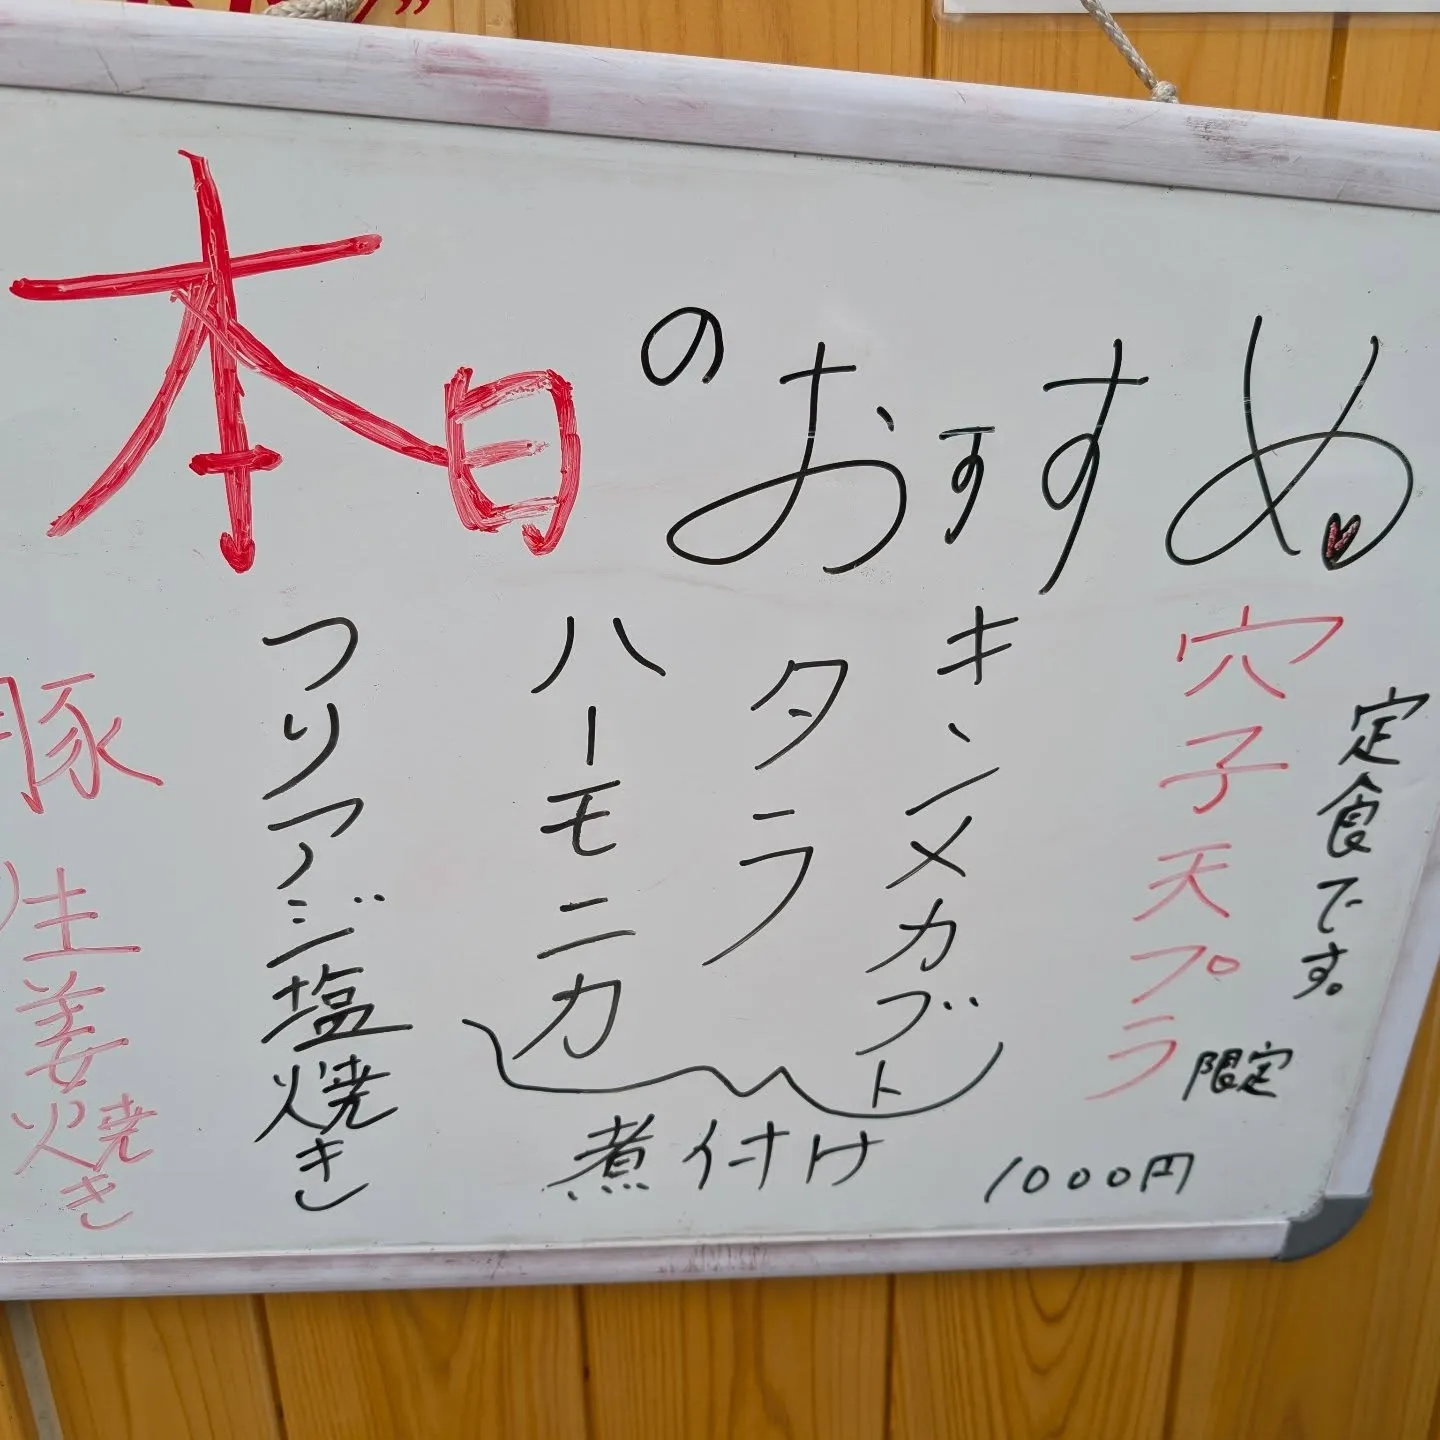 本日のおすすめ
定食です。
穴子天プラ
限定
1000円
キンメカブト
タラ
ハーモニカ
煮付け
つりアジ塩焼き
豚生姜焼き